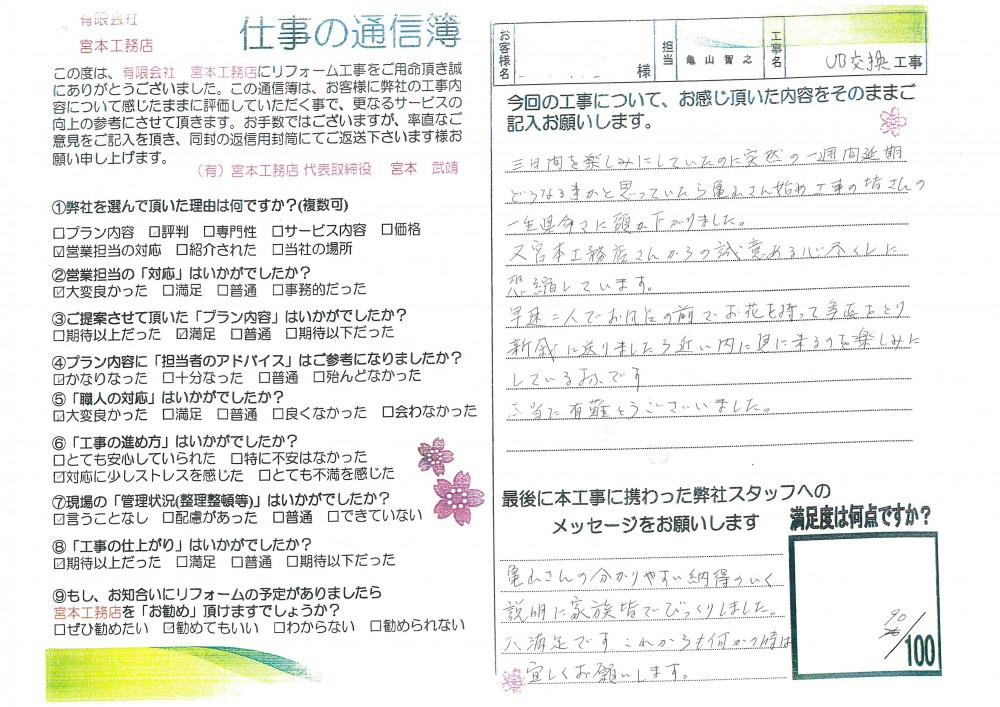 有限会社
宮本工務店
仕事の通信簿
この度は、有限会社 宮本工務店にリフォーム工事をご用命頂き誠
にありがとうございました。この通信簿は、お客様に弊社の工事内
容について感じたままに評価していただく事で、更なるサービスの
向上の参考にさせて頂きます。お手数ではございますが、率直なご
意見をご記入を頂き、同封の返信用封筒にてご返送下さいます様お
願い申し上げます。
(有)宮本工務店 代表取締役 宮本 武靖
①弊社を選んで頂いた理由は何ですか?(複数可)
□プラン内容 □評判 □専門性 □サービス内容 □価格
☑営業担当の対応 □紹介された □当社の場所
②営業担当の「対応」はいかがでしたか?
☑大変良かった □満足 □普通 □事務的だった
③ご提案させて頂いた「プラン内容」はいかがでしたか?
□期待以上だった ☑満足 □普通 □期待以下だった
④プラン内容に「担当者のアドバイス」はご参考になりましたか?
☑かなりなった □十分なった □普通 □殆んどなかった
⑤「職人の対応」はいかがでしたか?
☑大変良かった □満足 □普通 □良くなかった □会わなかった
⑥「工事の進め方」はいかがでしたか?
□とても安心していられた □特に不安はなかった
☑対応に少しストレスを感じた □とても不満を感じた
⑦現場の「管理状況(整理整頓等)」はいかがでしたか?
☑言うことなし □配慮があった □普通 □できていない
⑧「工事の仕上がり」はいかがでしたか?
☑期待以上だった □満足 □普通 □期待以下だった
⑨もし、お知合いにリフォームの予定がありましたら
宮本工務店を「お勧め」頂けますでしょうか?
□ぜひ勧めたい ☑勧めてもいい □わからない □勧められない
お客様名 様 担当 亀山智之 工事名 UB交換工事
今回の工事について、お感じ頂いた内容をそのままご
記入お願いします。
三日間を楽しみにしていたのに突然の一週間延期
どうなる事かと思っていたら亀山さん始め工事の皆さんの
一生県命さに頭が下がりました。
又宮本工務店さんからの誠意ある心尽くしに
恐縮しています。
早速二人でお風呂の前でお花を持って写真をとり
新潟に送りましたら近い内に見に来るのを楽しみに
している
本当に有難とうございました。
最後に本工事に携わった弊社スタッフへの
メッセージをお願いします
亀山さんの分かりやすい納得のいく
説明に家族皆でびっくりしました。
大満足です これからも何かの時は
宜しくお願いします。
満足度は何点ですか?
90/100